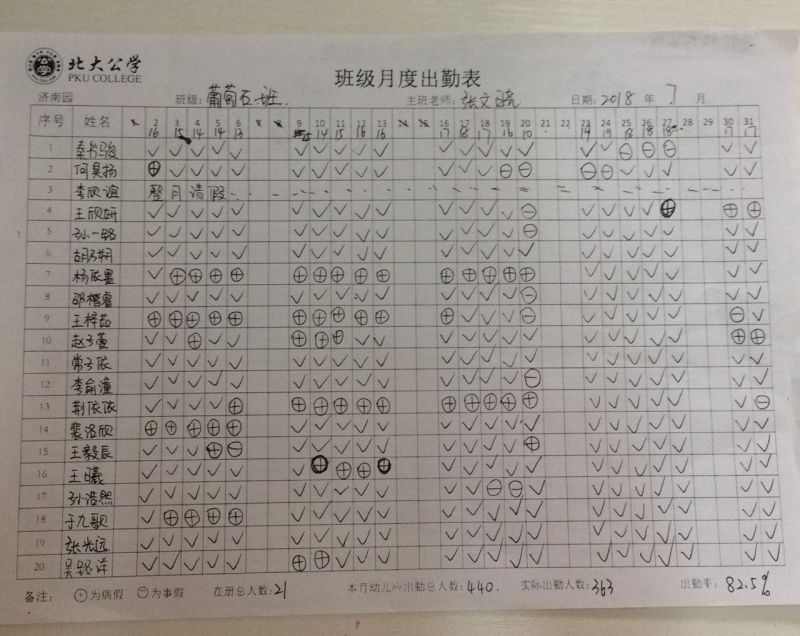 北大公学
PKU COLLEGE
济南园
班级月度出勤表
班级: 葡萄石班. 主班老师: 张文 日期: 2018 年 7 月
序号 姓名 2 3 4 5 6 9 10 11 12 13 16 17 18 19 20 21 22 23 24 25 26 27 28 29 30 31
16 15 14 14 13 15 14 15 16 16 17 18 17 19 10 19 19 18 18 18 17 17
1 秦书骏 ✓ ✓ ✓ ✓ ✓ ✓ ✓ ✓ ✓ ✓ ✓ ✓ ✓ ✓ ✓ ✓ ✓ ⊖ ⊖ ⊖ ✓ ✓
2 何昊扬 ⊕ ✓ ✓ ✓ ✓ ✓ ✓ ✓ ✓ ✓ ✓ ✓ ✓ ⊖ ⊖ ⊖ ⊖ ✓ ✓ ✓ ✓ ✓
3 李欣谊 整月请假
4 王欣妍 ✓ ✓ ✓ ✓ ✓ ✓ ✓ ✓ ✓ ✓ ✓ ✓ ✓ ✓ ⊖ ✓ ✓ ✓ ✓ ⊕ ⊕ ⊕
5 孙一铭 ✓ ✓ ✓ ✓ ✓ ✓ ✓ ✓ ✓ ✓ ✓ ✓ ✓ ✓ ⊖ ✓ ✓ ✓ ✓ ✓ ✓ ✓
6 胡乃朔 ✓ ✓ ✓ ✓ ✓ ✓ ✓ ✓ ✓ ✓ ✓ ✓ ✓ ✓ ✓ ✓ ✓ ✓ ✓ ✓ ✓ ✓
7 ✓ ⊕ ⊕ ⊕ ⊕ ⊕ ⊕ ⊕ ⊕ ⊕ ⊕ ⊕ ⊕ ⊕ ⊕ ✓ ✓ ✓ ✓ ✓ ✓ ✓
8 邵楷睿 ✓ ✓ ✓ ✓ ✓ ✓ ✓ ✓ ✓ ✓ ✓ ✓ ✓ ✓ ⊖ ✓ ✓ ✓ ✓ ✓ ✓ ✓
9 王梓茹 ⊕ ⊕ ⊕ ⊕ ⊕ ⊕ ⊕ ⊕ ⊕ ⊕ ⊕ ✓ ✓ ✓ ⊖ ✓ ✓ ✓ ✓ ✓ ⊖ ✓
10 赵子萱 ✓ ✓ ⊕ ✓ ✓ ⊕ ⊕ ⊕ ✓ ✓ ✓ ✓ ✓ ✓ ✓ ✓ ✓ ✓ ✓ ✓ ⊕ ⊕
11 常子依 ✓ ✓ ✓ ✓ ✓ ✓ ✓ ✓ ✓ ✓ ✓ ✓ ✓ ✓ ✓ ✓ ✓ ✓ ✓ ✓ ✓ ✓
12 李俞潼 ✓ ✓ ✓ ✓ ✓ ✓ ✓ ✓ ✓ ✓ ✓ ✓ ✓ ✓ ⊖ ✓ ✓ ✓ ✓ ✓ ✓ ✓
13 荆依依 ✓ ✓ ✓ ✓ ⊕ ⊕ ⊕ ⊕ ⊕ ⊕ ⊕ ⊕ ⊕ ⊕ ⊕ ✓ ✓ ✓ ✓ ✓ ✓ ⊖
14 裴洛欣 ⊕ ⊕ ⊕ ⊕ ⊕ ✓ ✓ ✓ ✓ ✓ ✓ ✓ ✓ ✓ ✓ ✓ ✓ ✓ ✓ ✓ ✓ ✓
15 王毅辰 ✓ ✓ ✓ ⊕ ⊖ ✓ ✓ ✓ ✓ ✓ ✓ ✓ ✓ ✓ ⊕ ✓ ✓ ✓ ✓ ✓ ✓ ✓
16 王曦 ✓ ✓ ✓ ✓ ✓ ✓ ⊕ ⊕ ⊕ ⊕ ✓ ✓ ✓ ✓ ✓ ✓ ✓ ✓ ✓ ✓ ✓ ✓
17 孙浩然 ✓ ✓ ✓ ✓ ✓ ✓ ✓ ✓ ✓ ✓ ✓ ✓ ⊖ ⊖ ✓ ✓ ✓ ✓ ✓ ✓ ✓ ✓
18 于九歌 ✓ ⊕ ⊕ ⊕ ⊕ ✓ ✓ ✓ ✓ ✓ ✓ ✓ ✓ ✓ ✓ ✓ ✓ ✓ ✓ ✓ ✓ ✓
19 张光远 ✓ ✓ ✓ ✓ ✓ ✓ ✓ ✓ ✓ ✓ ✓ ✓ ✓ ✓ ✓ ✓ ✓ ✓ ✓ ✓ ✓ ✓
20 吴 ✓ ✓ ✓ ✓ ✓ ⊕ ⊕ ✓ ✓ ✓ ✓ ✓ ✓ ✓ ✓ ✓ ✓ ✓ ✓ ✓ ✓ ✓
备注: ⊕为病假 ⊖为事假 在册总人数: 21 本月幼儿应出勤总人数: 440. 实际出勤人数: 363 出勤率: 82.5%